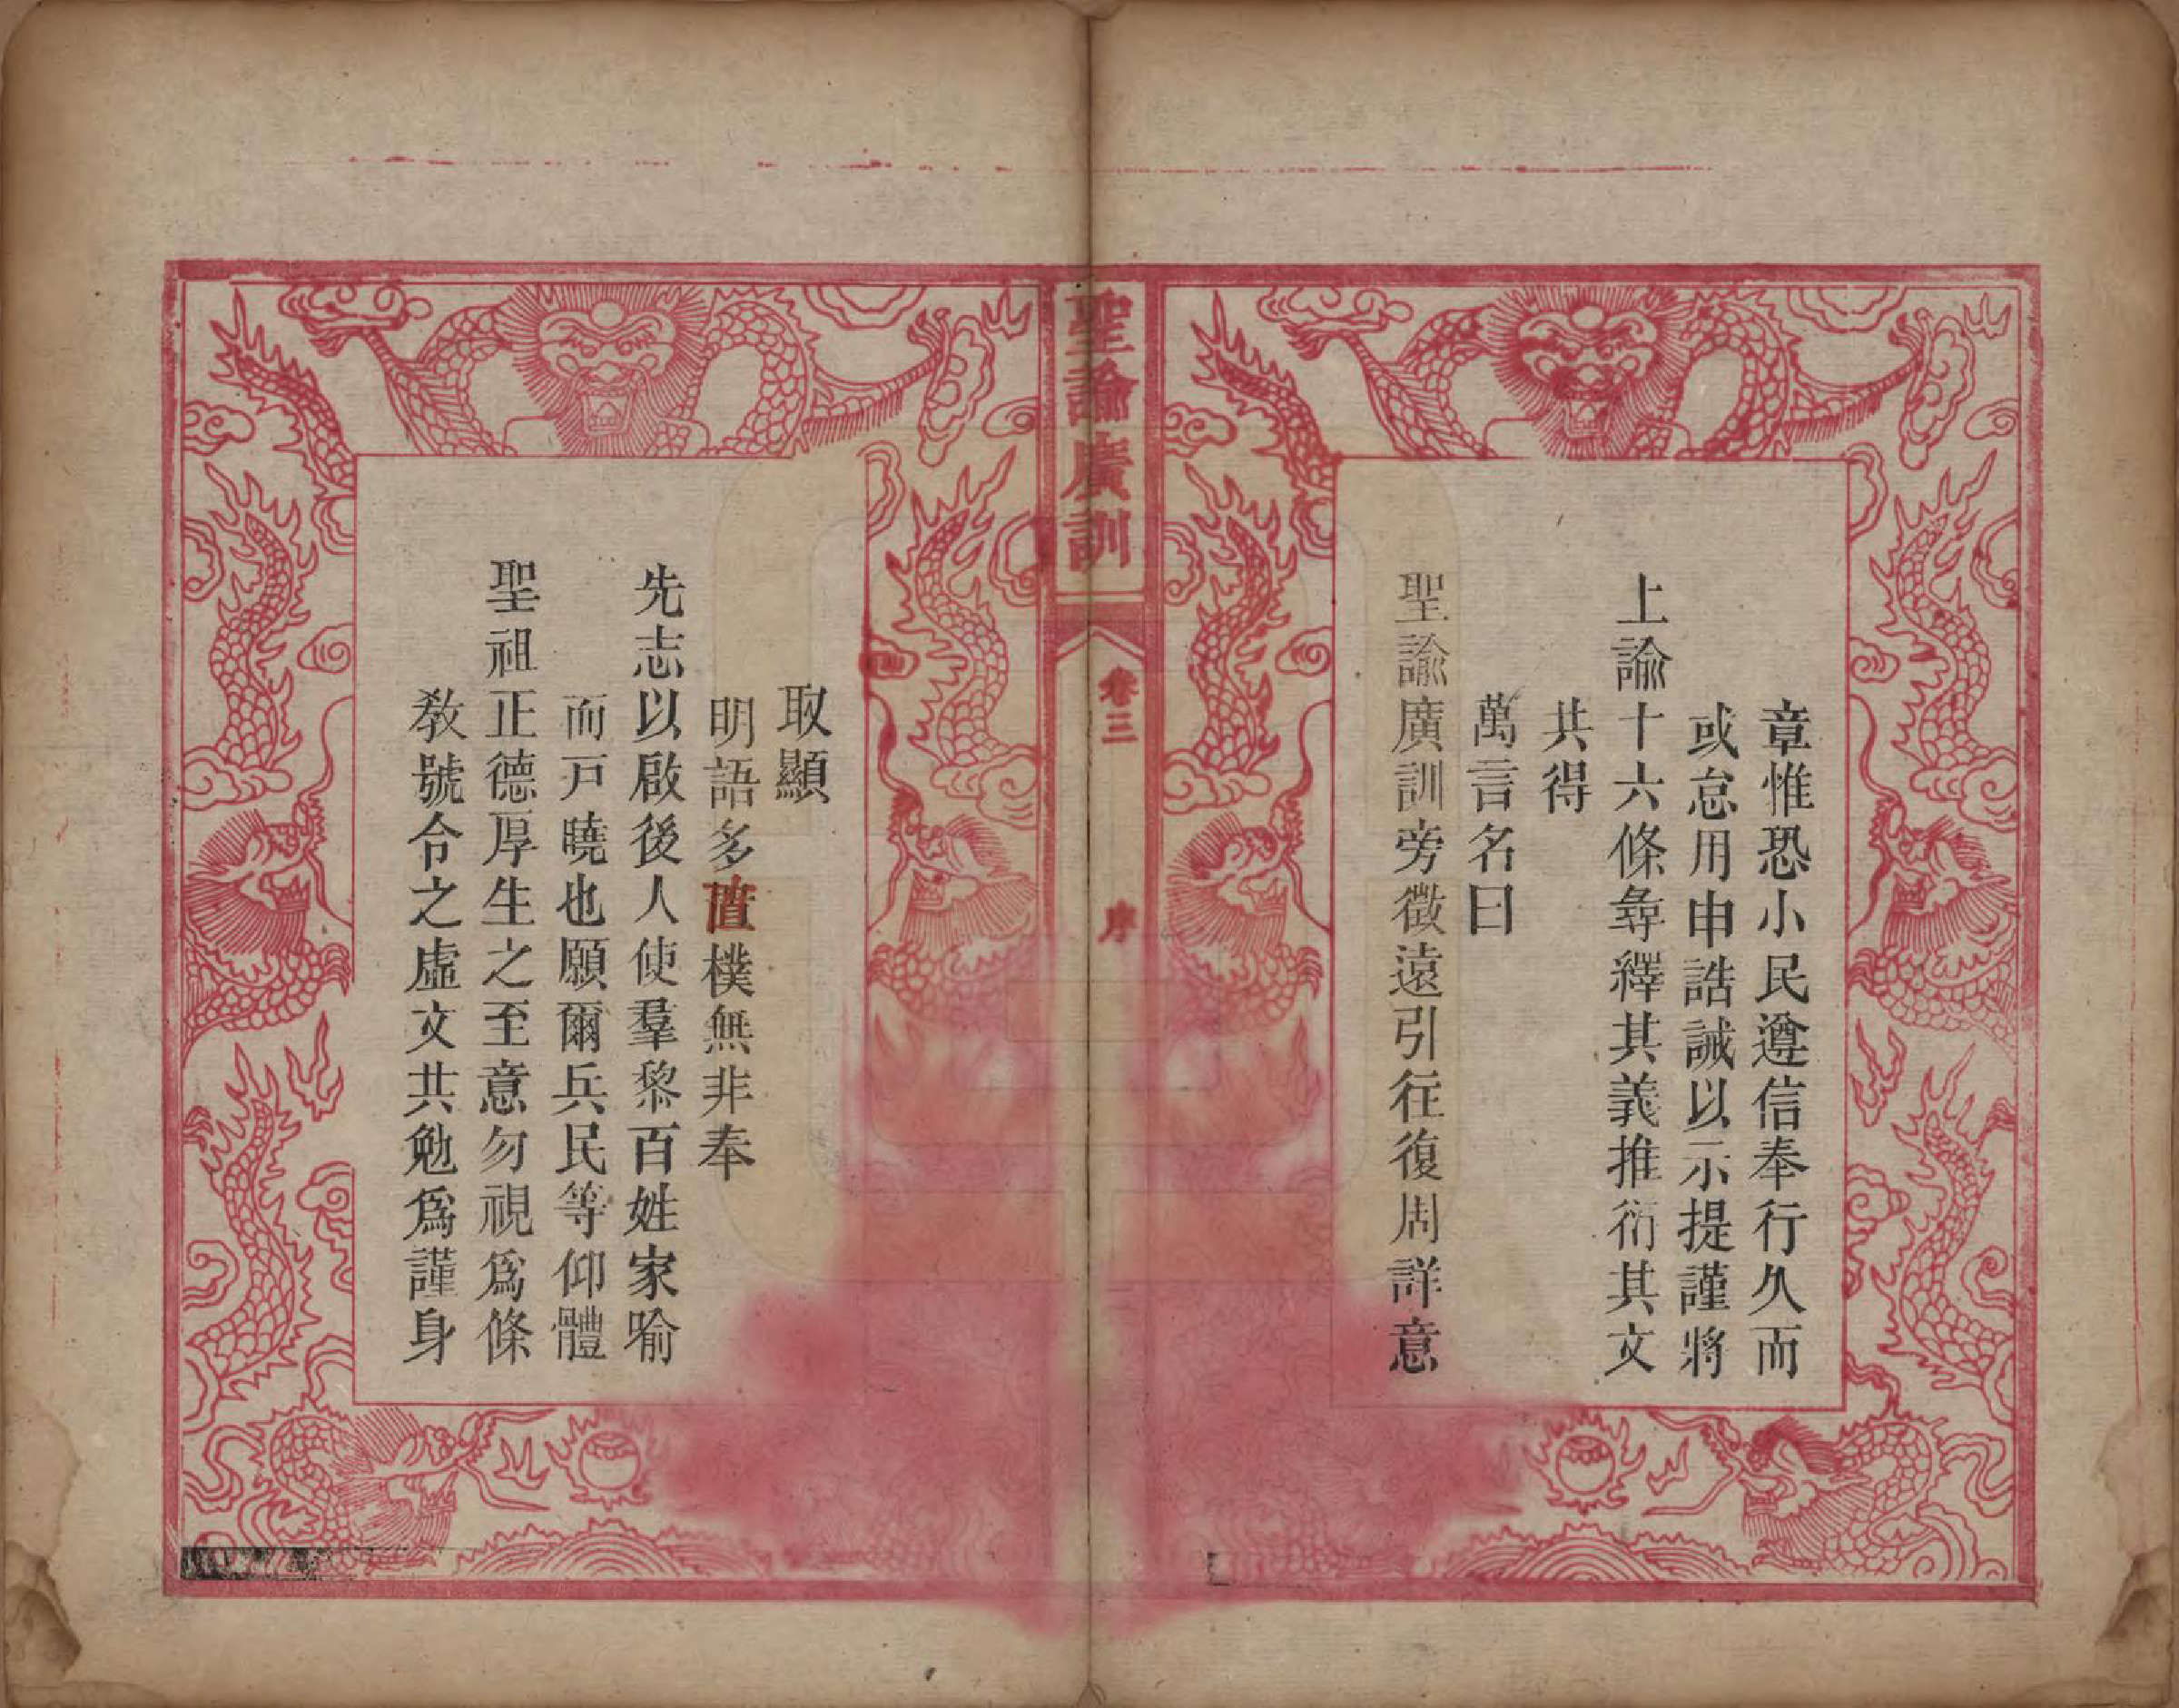 章惟恐小民遵信奉行久而
或怠用申誥誡以示提謹將
上諭十六條尋繹其義推衍其文
共得
萬言名曰
聖諭廣訓旁徵遠引往復周詳意
聖諭廣訓
卷三
序
取顯
明語多直樸無非奉
先志以啟後人使羣黎百姓家喻
而戸曉也願爾兵民等仰體
聖祖正德厚生之至意勿視爲條
敎號令之虛文共勉爲謹身